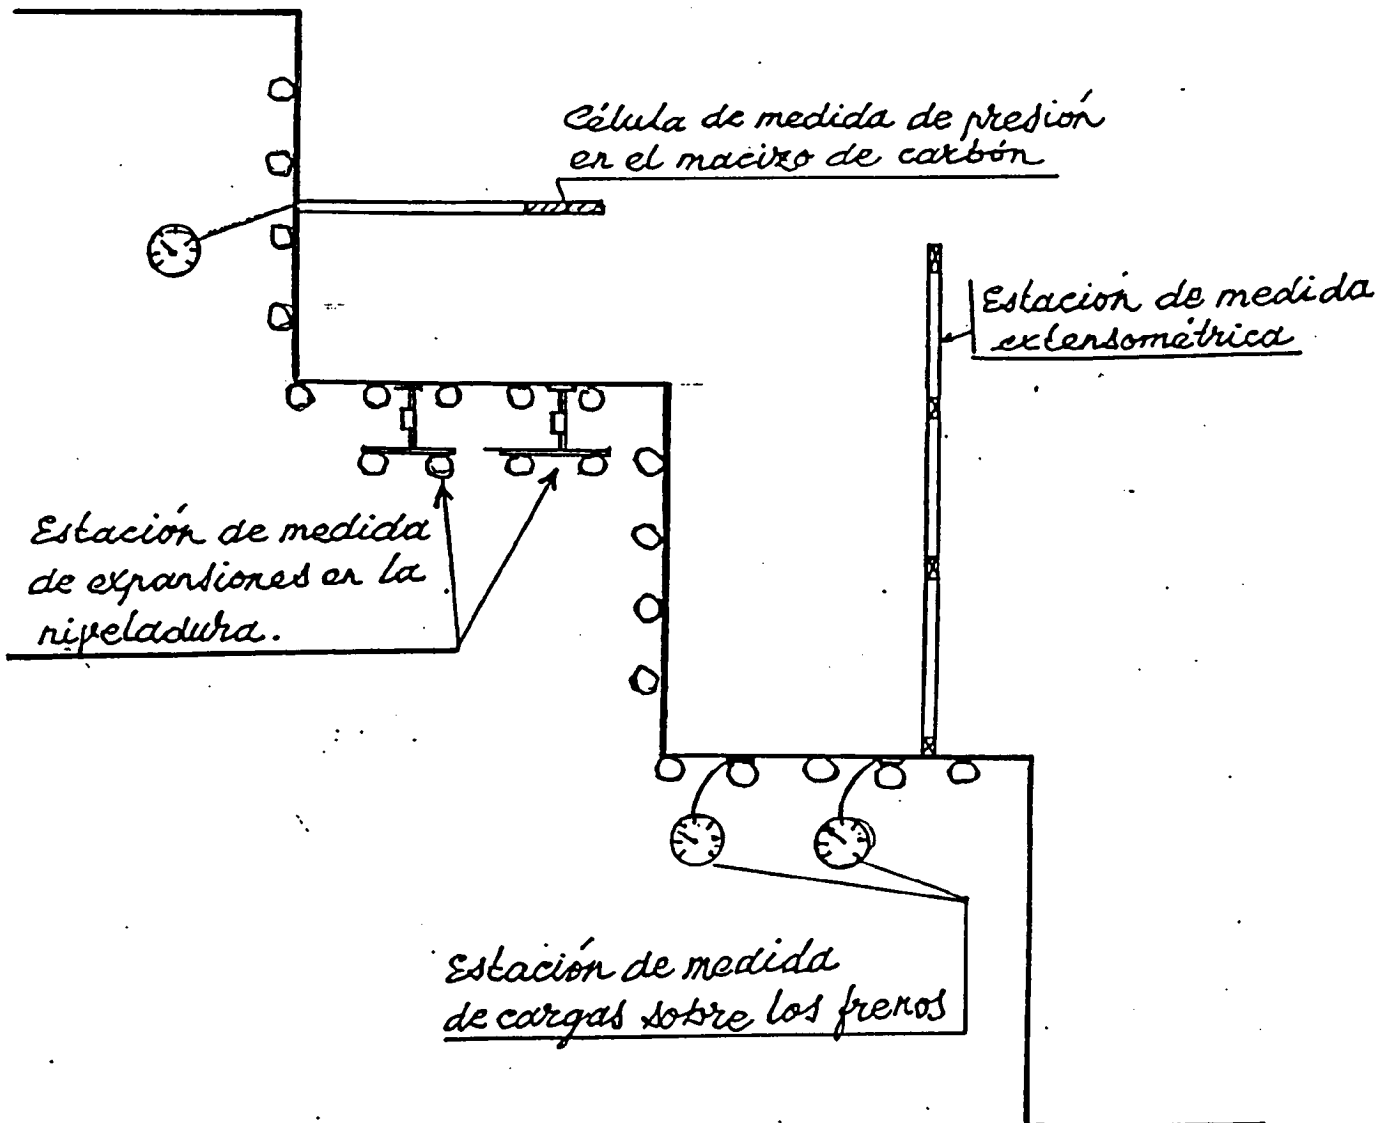 Célula de medida de presión
en el macizo de carbón
Estación de medida
extensométrica
Estación de medida
de expansiones en la
niveladura.
Estación de medida
de cargas sobre los frenos